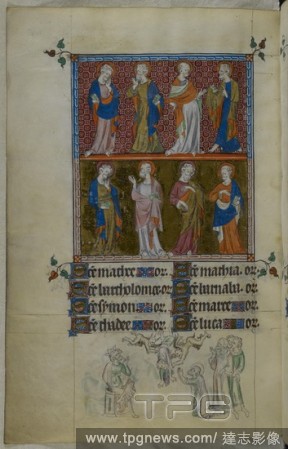 Sce mathee or. Sce mathia. or.
Sce bartholomee. or. Sce barnaba. or.
Sce symon or. Sce marce or.
Sce thadee or. Sce luca or.
TPG
www.tpgnews.com/ 達志影像